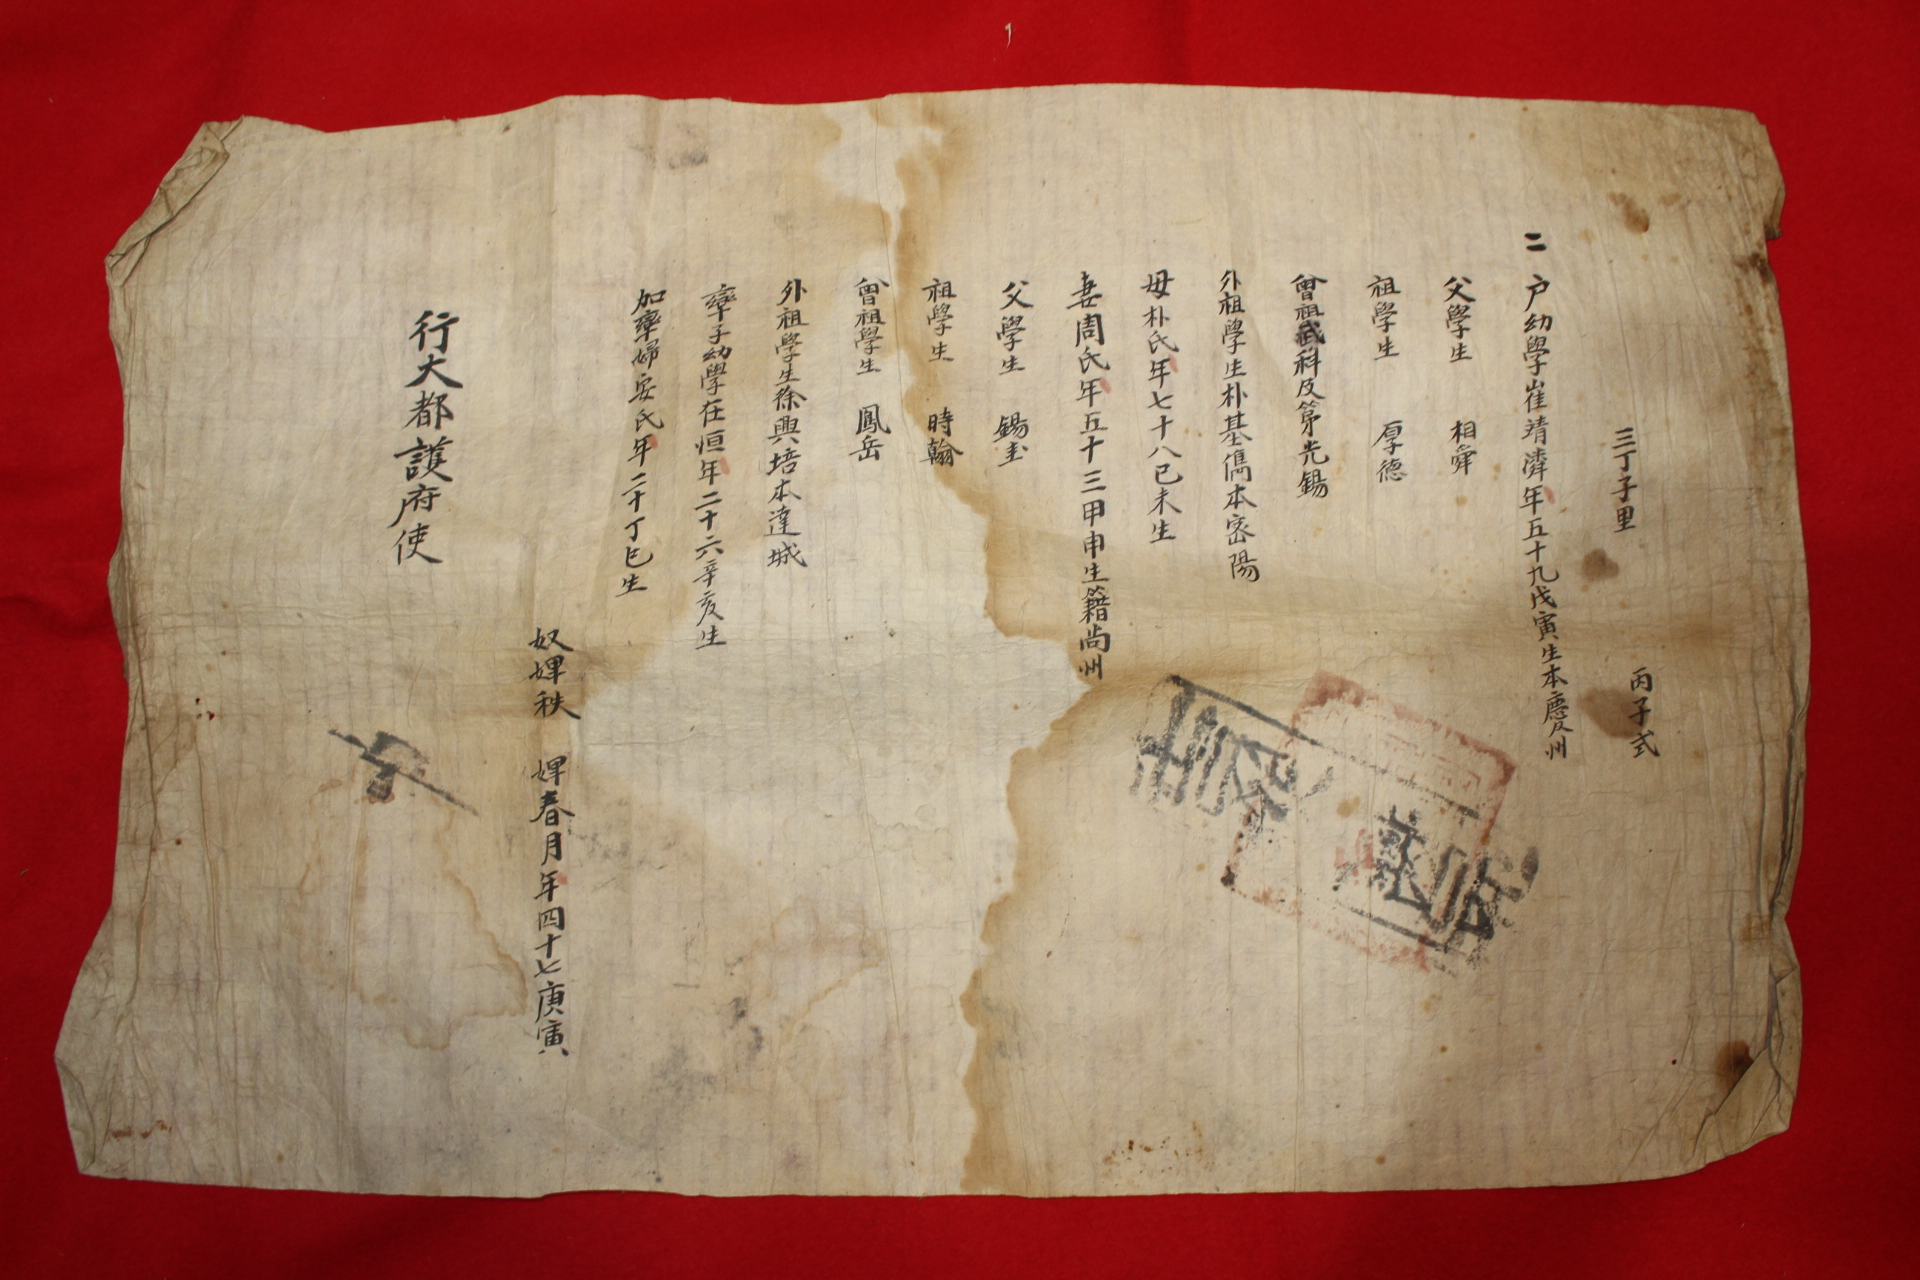 三丁子里 丙子式
二 戶幼學崔靖濟年五十九戊寅生本慶州
父學生 相舜
祖學生 厚德
曾祖武科及第光錫
外祖學生朴基儁本密陽
母朴氏年七十八己未生
妻周氏年五十三甲申生籍尙州
父學生 錫圭
祖學生 時翰
曾祖學生 鳳岳
外祖學生徐興培本達城
率子幼學在恒年二十六辛亥生
加率婦安氏年二十丁巳生
奴婢秩 婢春月年四十七庚寅
行大都護府使